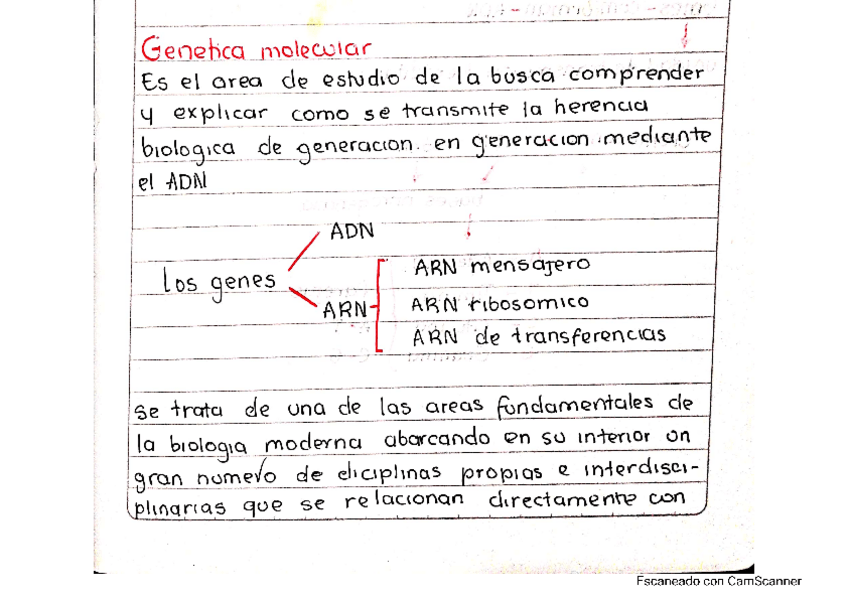 Genetica molecular
Es el area de estudio de la busca comprender
y explicar como se transmite la herencia
biologica de generacion en generacion mediante
el ADN
ADN
Los genes
ARN mensajero
ARN
ARN ribosomico
ARN de transferencias
se trata de una de las areas fundamentales de
la biologia moderna abarcando en su interior un
gran numero de diciplinas propias e interdisci-
plinarias que se relacionan directamente con
Escaneado con CamScanner